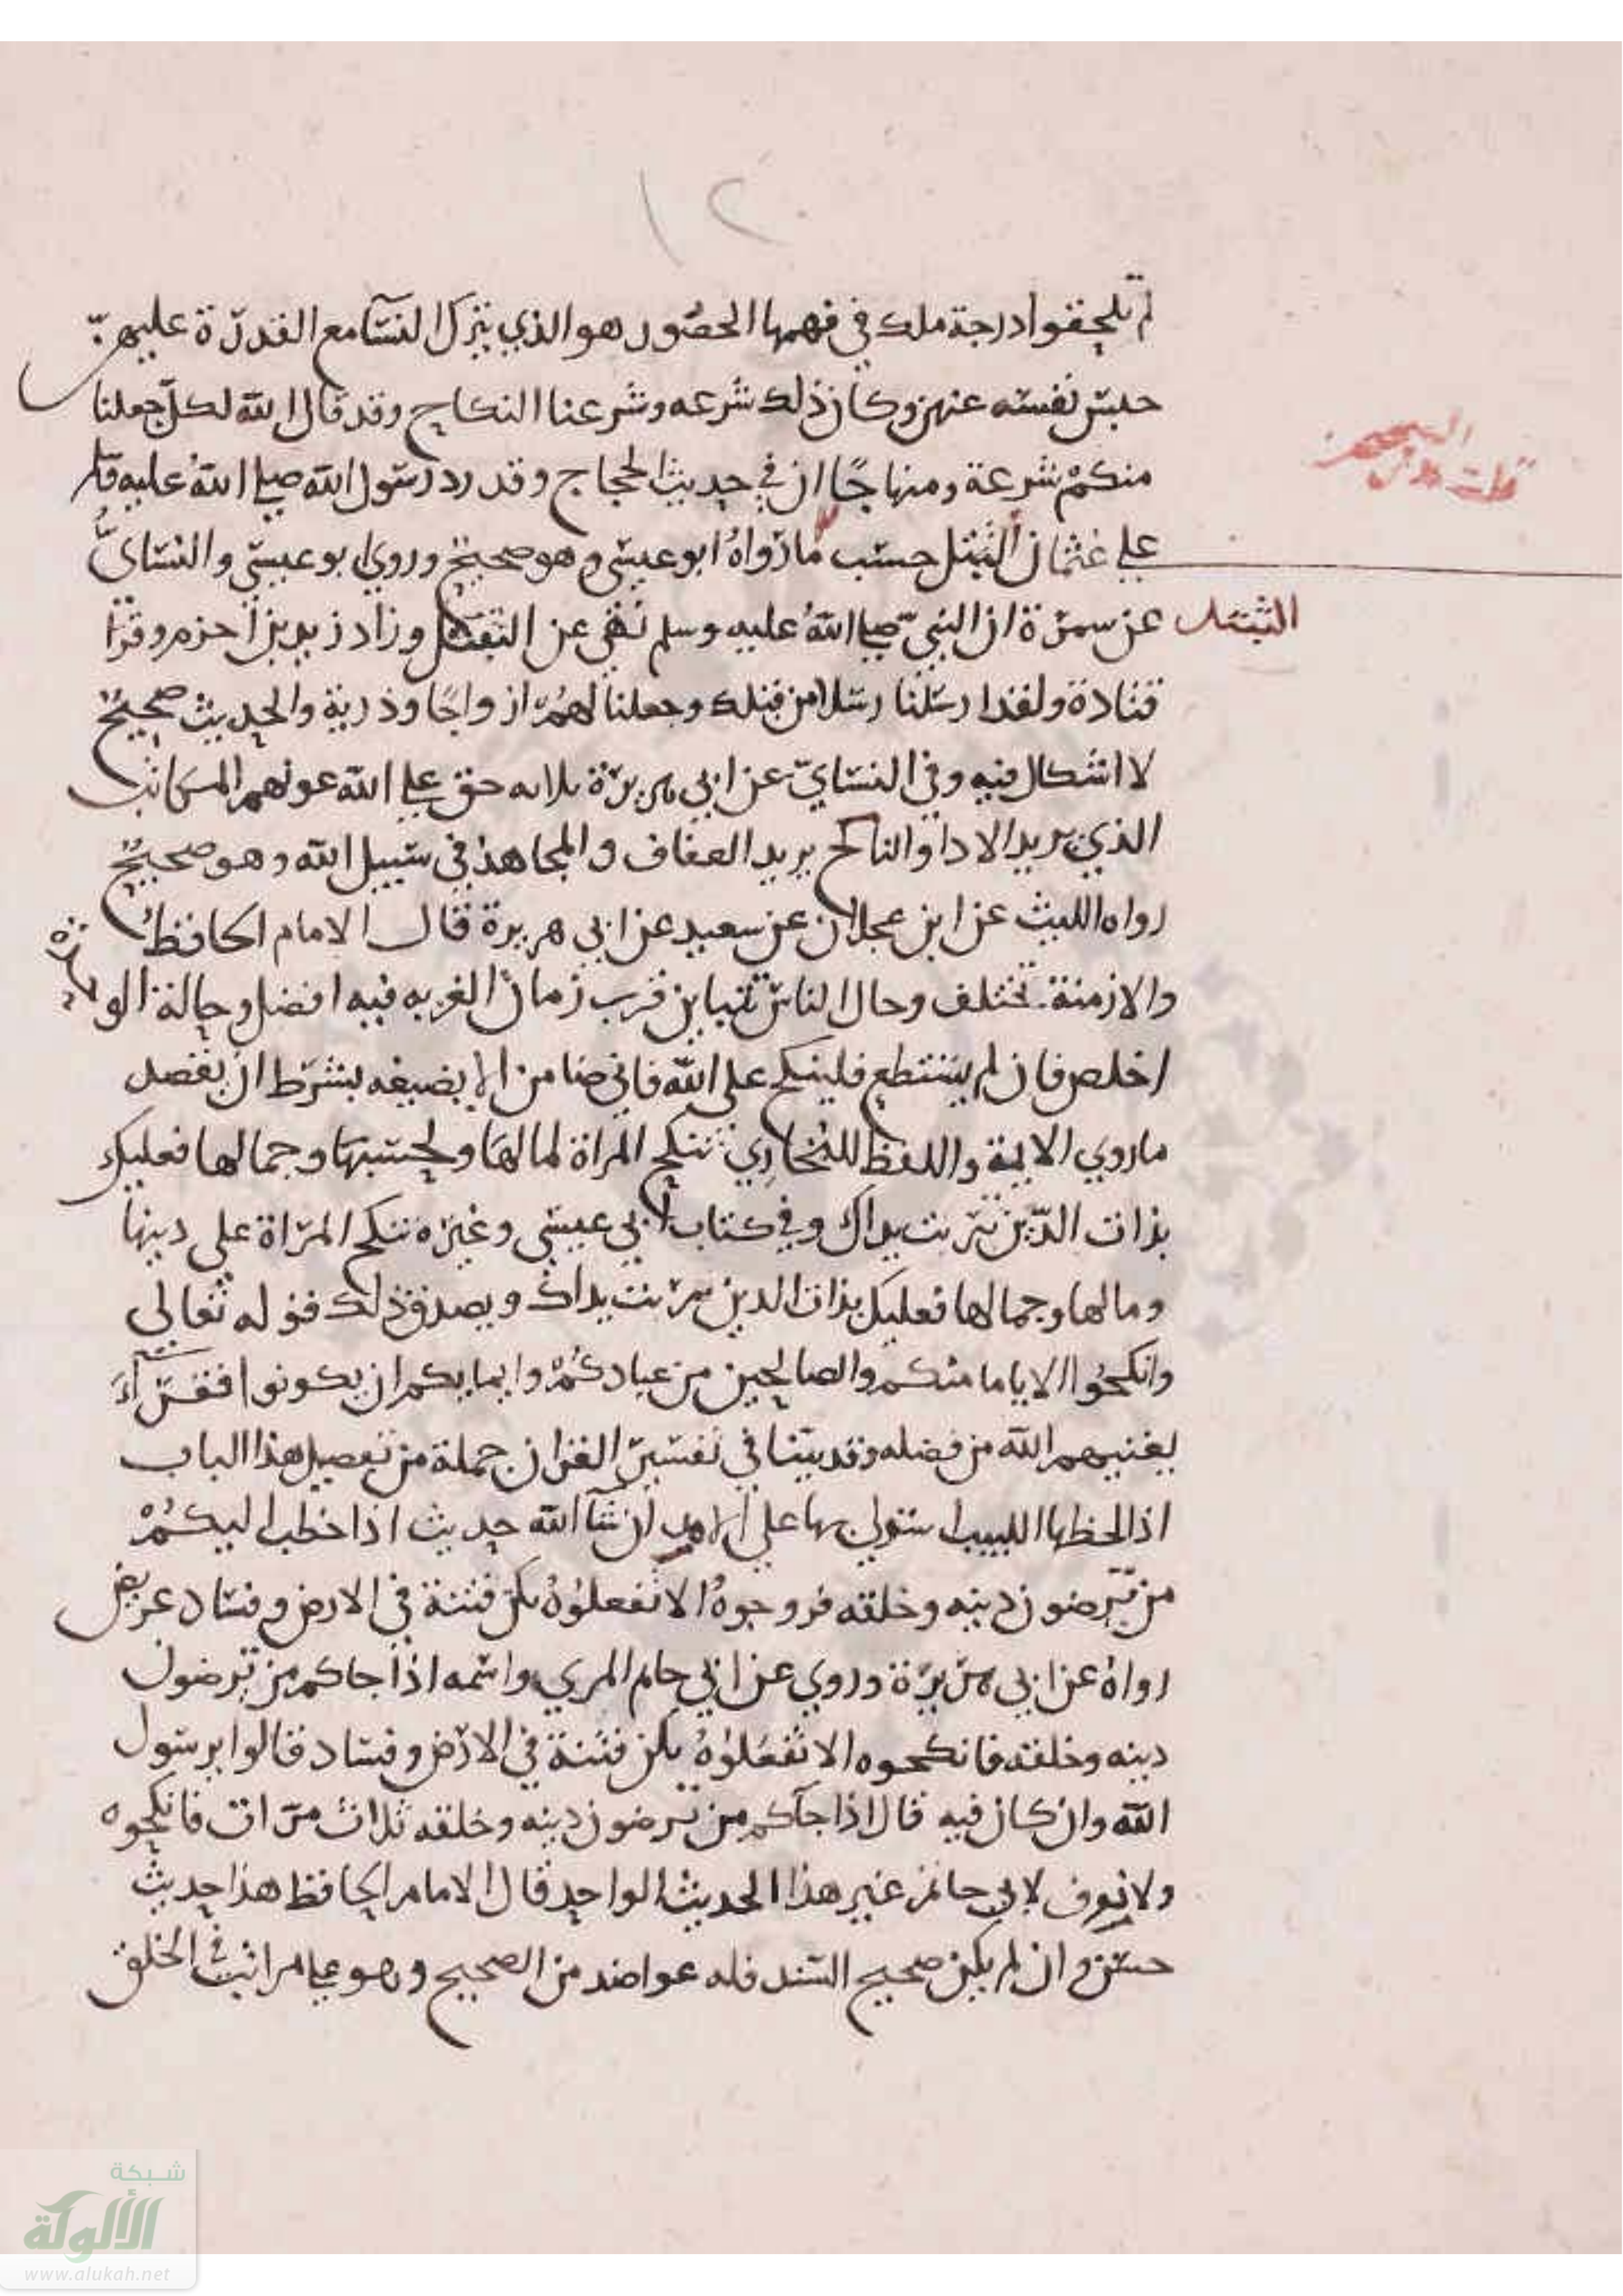 ١٢
لم يلحقوا درجة ملك في فهمها الحصور هو الذي يترك النسآ مع القدرة عليهن
حبس نفسه عنهن وكان ذلك شرعه وشرعنا النكاح وقد قال الله لكل جعلنا
منكم شرعة ومنهاجا ان في حديث الحجاج وقد رد رسول الله صلى الله عليه
قلت
على عثمان التبتل حسب ما رواه ابو عيسى وهو صحيح وروي ابو عيسى والنساي
التبتل
عن سمرة ان النبي صلى الله عليه وسلم نهى عن التبتل وزاد زيد بن اخزم وقرا
قتادة ولقد ارسلنا رسلا من قبلك وجعلنا لهم ازواجا وذرية والحديث صحيح
لا اشكال فيه وفي النساي عن ابي هريرة ثلاثه حق على الله عونهم المكاتب
الذي يريد الادا والناكح يريد العفاف والمجاهد في سبيل الله وهو صحيح
رواه الليث عن ابن عجلان عن سعيد عن ابي هريرة قال الامام الحافظ
والازمنة تختلف وحال الناس تتباين فرب زمان الغربه فيه افضل وحالة الو
اخلص فان لم يستطع فلينكح على الله فاني ضامن الا يضيعه بشرط ان يقصد
ما روي الايمة واللفظ للبخاري تنكح المراة لمالها ولحسبها وجمالها فعليك
بذات الدين تربت يداك وفي كتاب ابي عيسى وغيره تنكح المراة على دينها
ومالها وجمالها فعليك بذات الدين تربت يداك ويصدق ذلك قوله تعالى
وانكحوا الاياما منكم والصالحين من عبادكم وايمايكم ان يكونوا فقرآء
يغنيهم الله من فضله وقد بينا في تفسير القران جملة من تفصيل هذا الباب
اذا لحظها اللبيب استولى بها على الامد ان شآ الله حديث اذا خطب اليكم
من ترضون دينه وخلقه فزوجوه الا تفعلوه تكن فتنة في الارض وفساد عريض
رواه عن ابي هريرة وروي عن ابي حاتم المزي واسمه اذا جاكم من ترضون
دينه وخلقه فانكحوه الا تفعلوه تكن فتنة في الارض وفساد قالوا يرسول
الله وان كان فيه قال اذا جآكم من ترضون دينه وخلقه ثلاث مرات فانكحوه
ولا نعرف لابي حاتم غير هذا الحديث الواحد قال الامام الحافظ هذا حديث
حسن وان لم يكن صحيح السند فله عواضد من الصحيح وهو على مراتب الخلق
شبكة
الألوكة
www.alukah.net